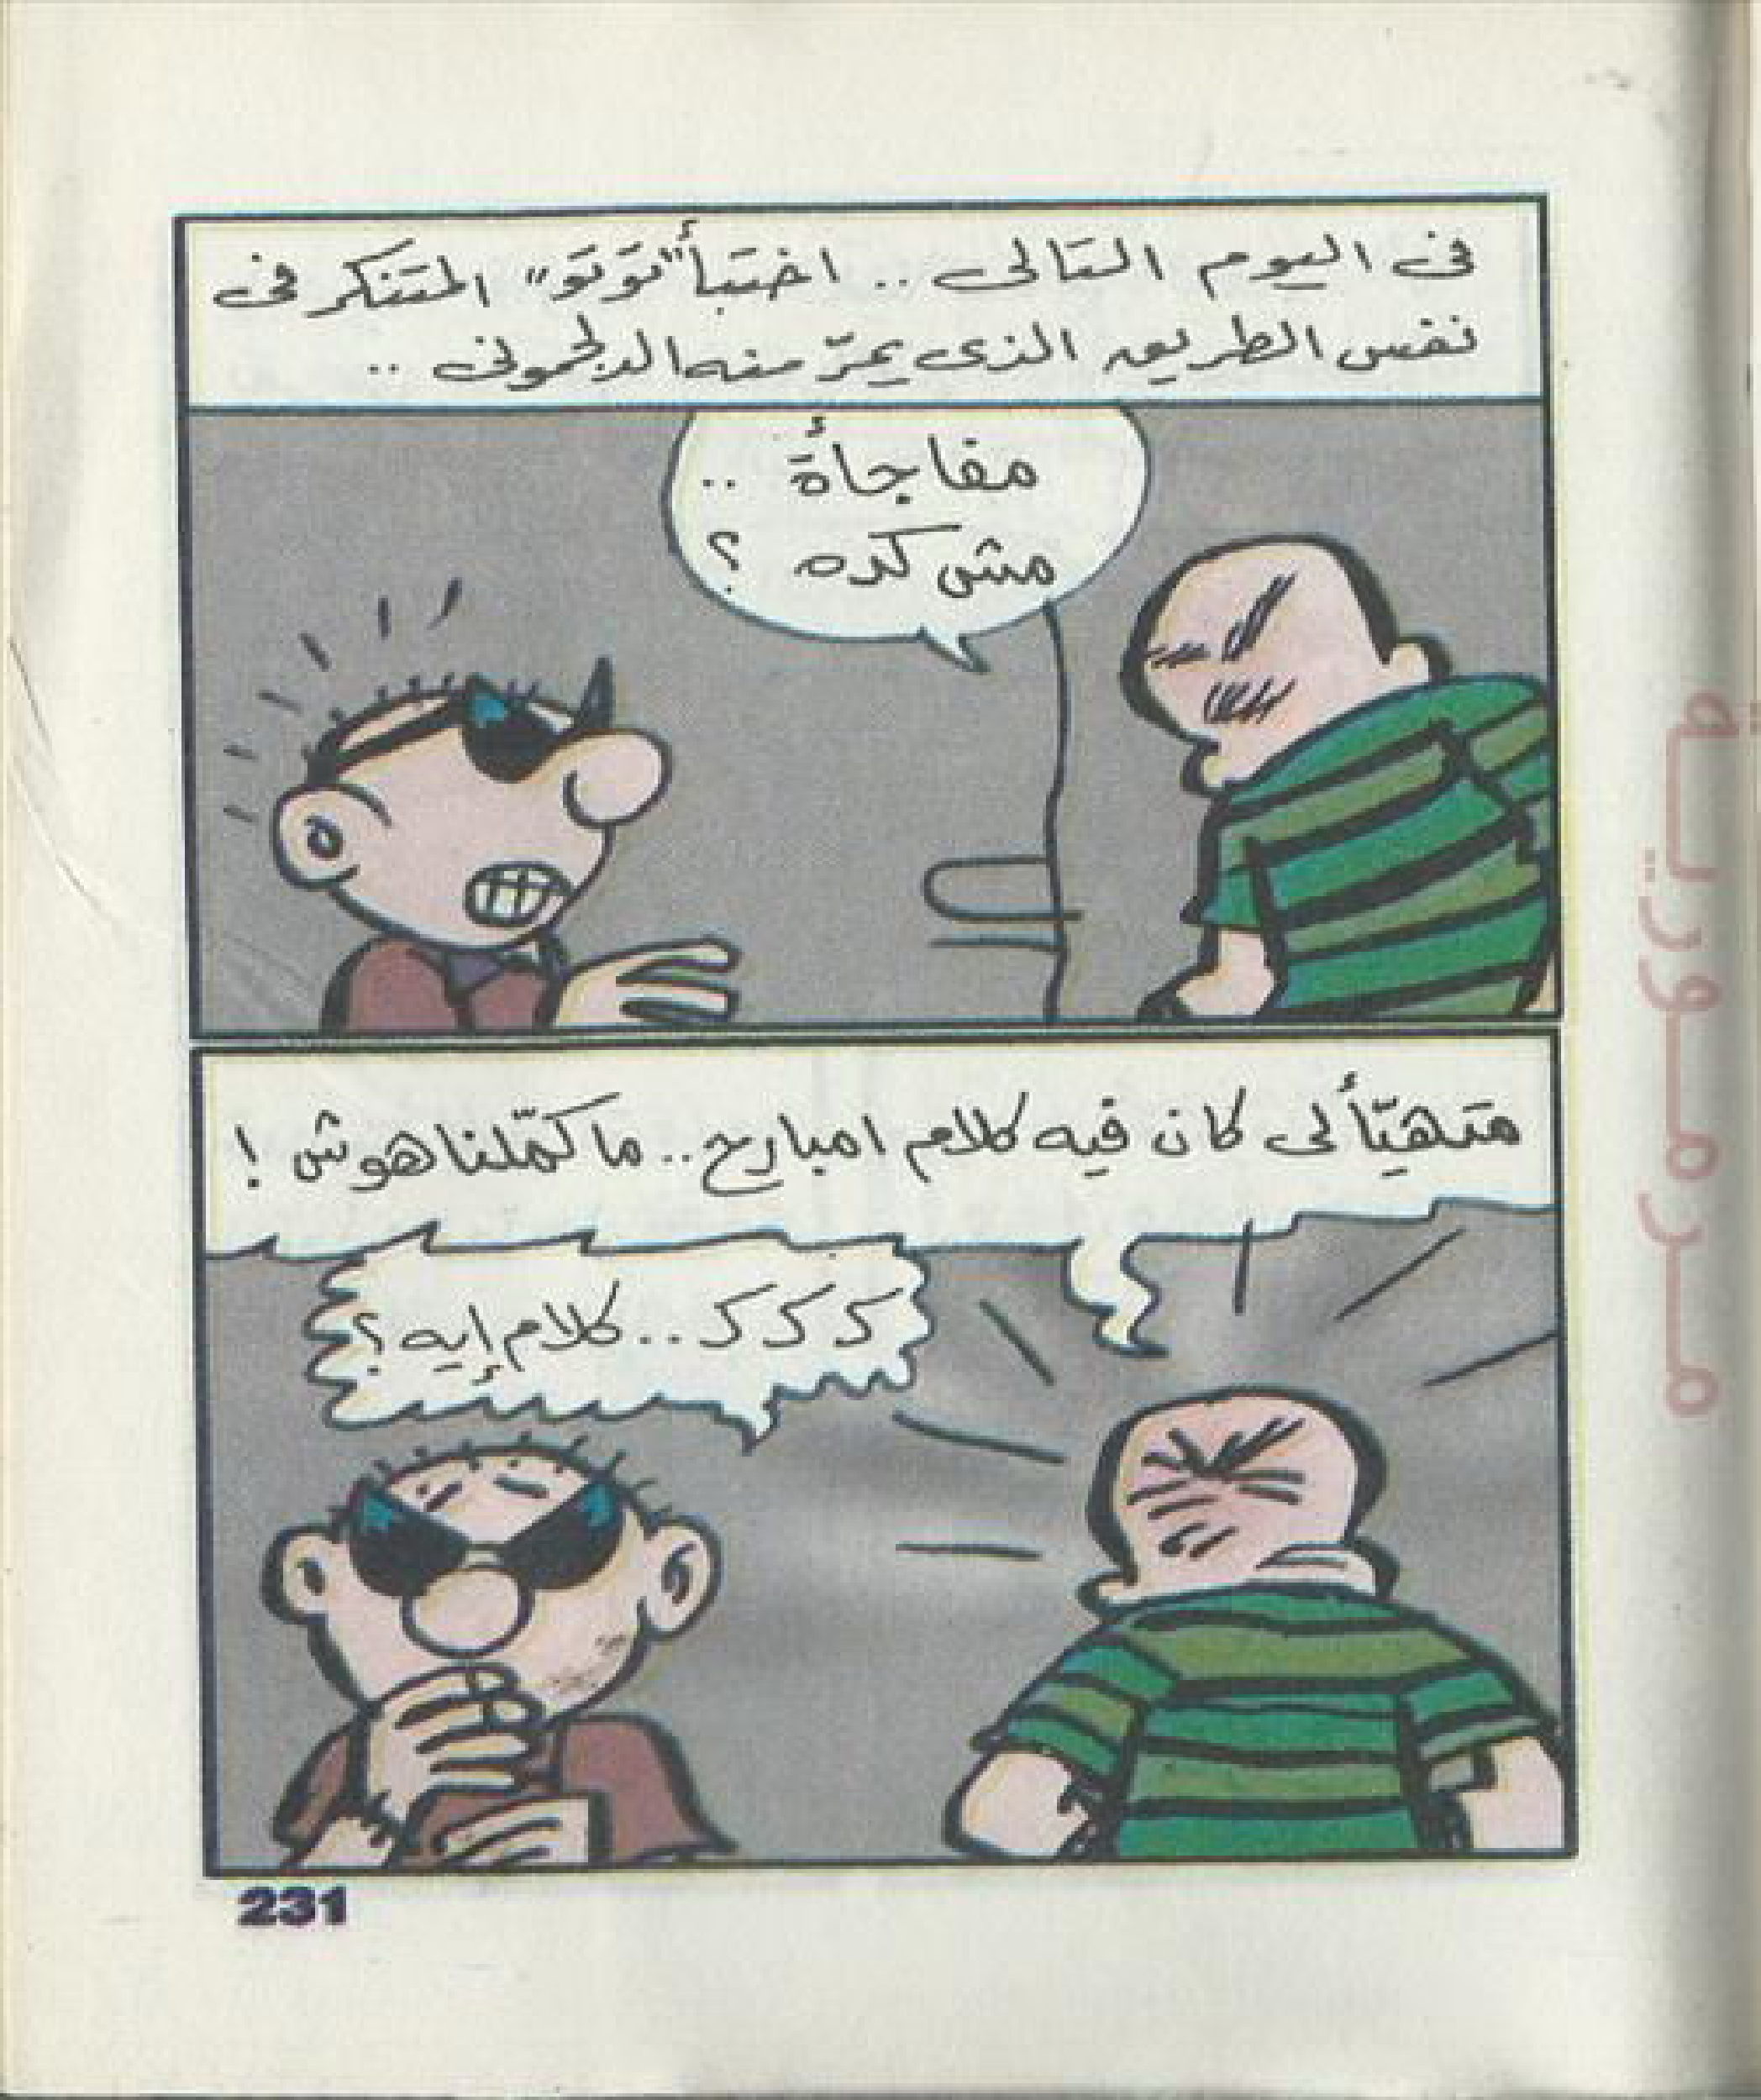 فى اليوم التالى .. اختبأ "توتو" المتنكر فى
نفس الطريق الذى يمرّ منه الدلجمونى ..
مفاجأة ..
مش كده ؟
متهيّألى كان فيه كلام امبارح .. ما كمّلناهوش !
ك ك ك .. كلام إيه ؟
231
مرمورية